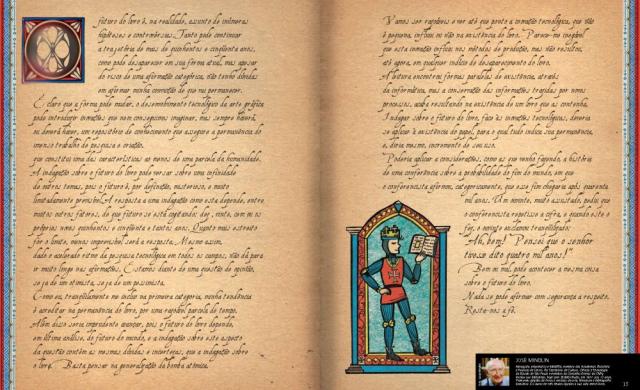 O futuro do livro é, na realidade, assunto de inúmeras
hipóteses e controvérsias. Tanto pode continuar
a trajetória de mais de quinhentos e cinqüenta anos,
como pode desaparecer em sua forma atual, mas apesar
do risco de uma afirmação categórica, não tenho dúvidas
em afirmar minha convicção de que vai permanecer.
É claro que a forma pode mudar, o desenvolvimento tecnológico da arte gráfica
pode introduzir inovações que nem conseguimos imaginar, mas sempre haverá,
ou deverá haver, um repositório de conhecimento que assegure a permanência do
imenso trabalho de pesquisa e criação,
que constitui uma das características ao menos de uma parcela da humanidade.
A indagação sobre o futuro do livro pode versar sobre uma infinidade
de outros temas, pois o futuro é, por definição, misterioso, e muito
limitadamente previsível. A resposta a uma indagação como esta depende, entre
muitos outros fatores, do que futuro se está captando: dez, vinte, cem ou os
próprios novos quinhentos e cinqüenta e tantos anos. Quanto mais estreito
for o limite, menos imprevisível será a resposta. Mesmo assim,
dado o acelerado ritmo da pesquisa tecnológica em todos os campos, não dá para
ir muito longe nas afirmações. Estamos diante de uma questão de opinião,
seja de um otimista, seja de um pessimista.
Como eu, tranqüilamente me incluo na primeira categoria, minha tendência
é acreditar na permanência do livro, por uma razoável parcela do tempo.
Além disso seria imprudente avançar, pois o futuro do livro depende,
em última análise, do futuro do mundo, e a indagação sobre este aspecto
da questão contém as mesmas dúvidas e incertezas, que a indagação sobre
o livro. Basta pensar na generalização da bomba atômica.
Vamos ser razoáveis e ver até que ponto a inovação tecnológica, que não
é pequena, influi ou não na existência do livro. Parece-me inegável
que esta inovação influi nos métodos de produção, mas não resultou,
até agora, em qualquer indício de desaparecimento do livro.
A leitura encontrou formas paralelas de existência, através
da informática, mas a conservação das informações tragadas por novos
processos, acaba resultando na existência de um livro que as contenha.
Indagar sobre o futuro do livro, face às inovações tecnológicas, deveria
se aplicar à existência do papel, para o qual tudo indica sua permanência,
e, diria mesmo, incremento de seu uso.
Poderia aplicar a considerações, como as que venho fazendo, a história
de uma conferência sobre a probabilidade do fim do mundo, em que
o conferencista afirmou, categoricamente, que esse fim chegaria após quarenta
mil anos. Um ouvinte, muito assustado, pediu que
o conferencista repetisse a cifra, e quando este o
fez, o ouvinte exclamou tranqüilizado:
"Ah, bom! Pensei que o senhor
tivesse dito quatro mil anos!"
Bem ou mal, pode acontecer a mesma coisa
sobre o futuro do livro.
Nada se pode afirmar com segurança a respeito.
Resta-nos a fé.
JOSÉ MINDLIN